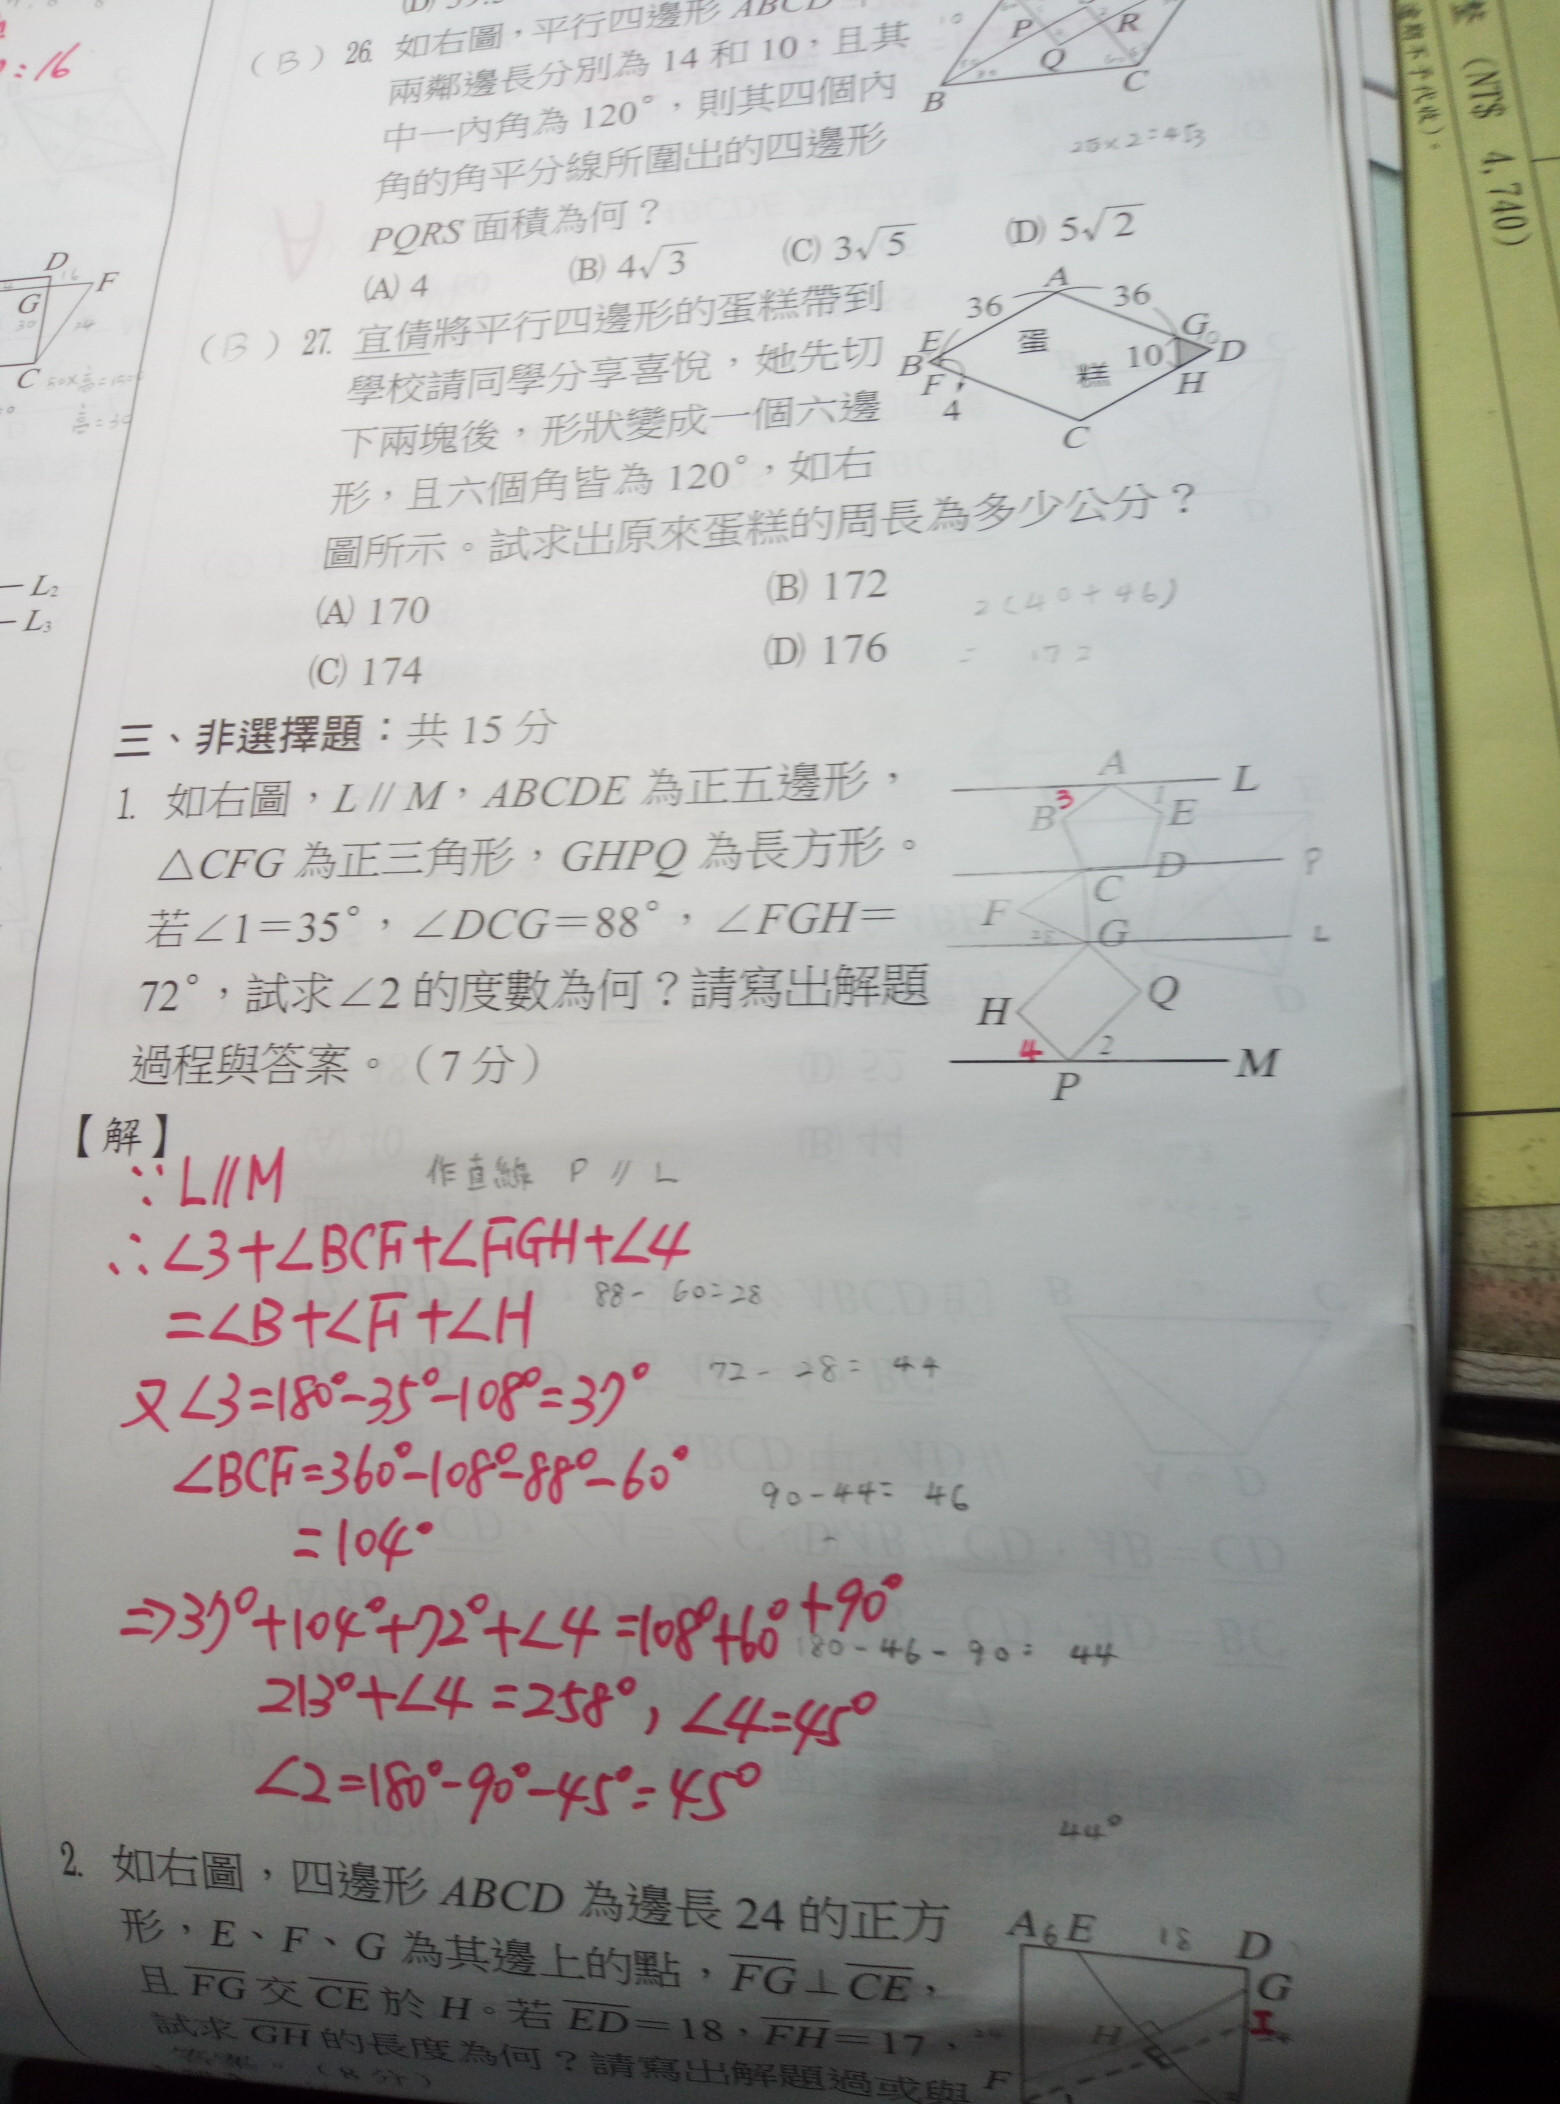 :16
(B) 26. 如右圖,平行四邊形 ABCD
兩鄰邊長分別為 14 和 10,且其
中一內角為 120°,則其四個內
角的角平分線所圍出的四邊形
PQRS 面積為何?
(A) 4 (B) 4√3 (C) 3√5 (D) 5√2
P R
Q
B C
2√3×2=4√3
A
(B) 27. 宜倩將平行四邊形的蛋糕帶到
學校請同學分享喜悅,她先切
下兩塊後,形狀變成一個六邊
形,且六個角皆為 120°,如右
圖所示。試求出原來蛋糕的周長為多少公分?
(A) 170 (B) 172
(C) 174 (D) 176
A
36 36
E 蛋 G
B 糕 10 D
F H
4
C
2(40+46)
= 172
D 16 F
G
30 24
C
L2
L3
三、非選擇題:共 15 分
1. 如右圖,L // M,ABCDE 為正五邊形,
△CFG 為正三角形,GHPQ 為長方形。
若∠1=35°,∠DCG=88°,∠FGH=
72°,試求∠2 的度數為何?請寫出解題
過程與答案。(7 分)
A L
B 3 1 E
D P
C
F
28 G L
H Q
4 2
P M
【解】
∵L//M
作直線 P // L
∴∠3+∠BCF+∠FGH+∠4
=∠B+∠F+∠H
88-60=28
又∠3=180°-35°-108°=37°
72-28=44
∠BCF=360°-108°-88°-60°
=104°
90-44=46
⇒37°+104°+72°+∠4=108°+60°+90°
180-46-90=44
213°+∠4=258°,∠4=45°
∠2=180°-90°-45°=45°
44°
2. 如右圖,四邊形 ABCD 為邊長 24 的正方
形,E、F、G 為其邊上的點,FG⊥CE,
且 FG 交 CE 於 H。若 ED=18,FH=17,
試求 GH 的長度為何?請寫出解題過或與
(8 分)
A 6 E 18 D
G
H I
F
整 (NT$ 4,740)